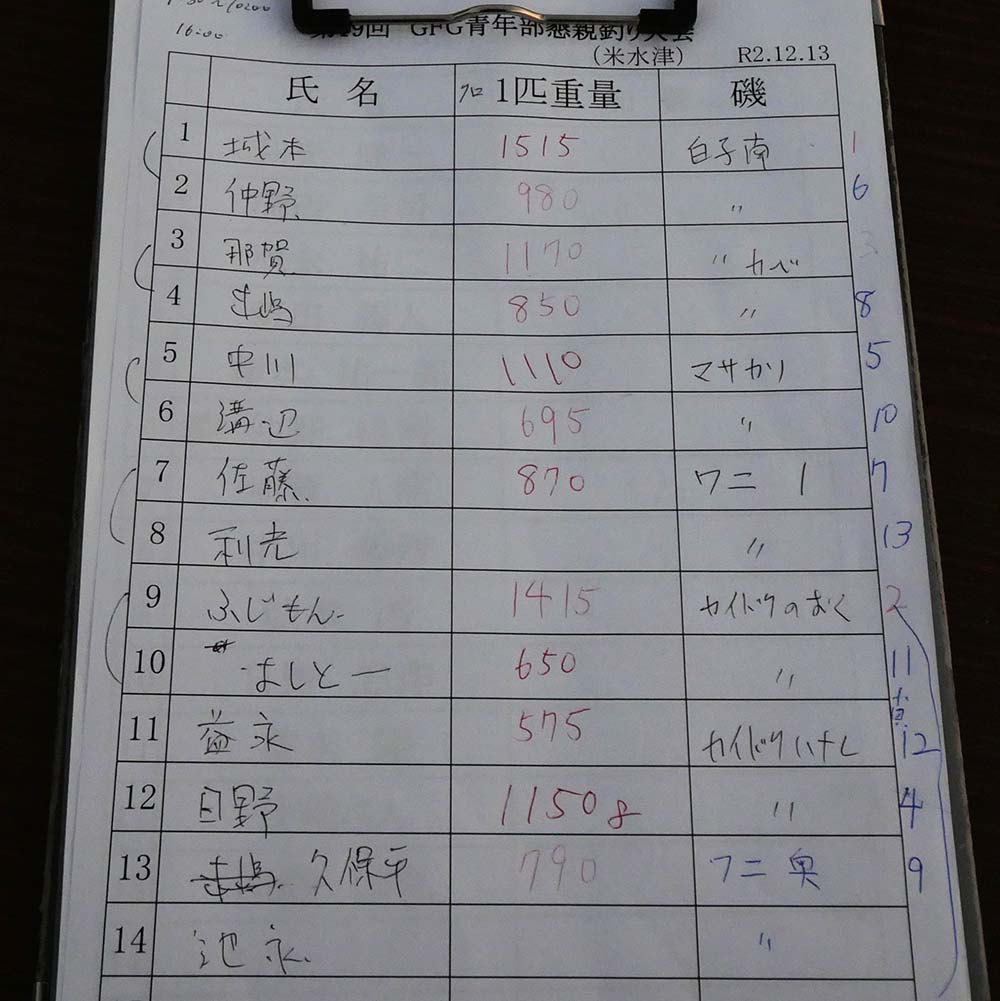 16:00
第19回 GFG青年部懇親釣り大会
(米水津) R2.12.13
氏名 クロ 1匹重量 磯
1 城本 1515 白子南 1
2 仲野 980 〃 6
3 那賀 1170 〃 カベ 3
4 850 〃 8
5 中川 1110 マサカリ 5
6 溝辺 695 〃 10
7 佐藤 870 ワニ 1 7
8 利光 〃 13
9 ふじもん 1415 カイドウのおく 2
10 よしとー 650 〃 11
11 益永 575 カイドウハナレ 12
12 日野 1150g 〃 4
13 久保平 790 ワニ奥 9
14 池永 〃